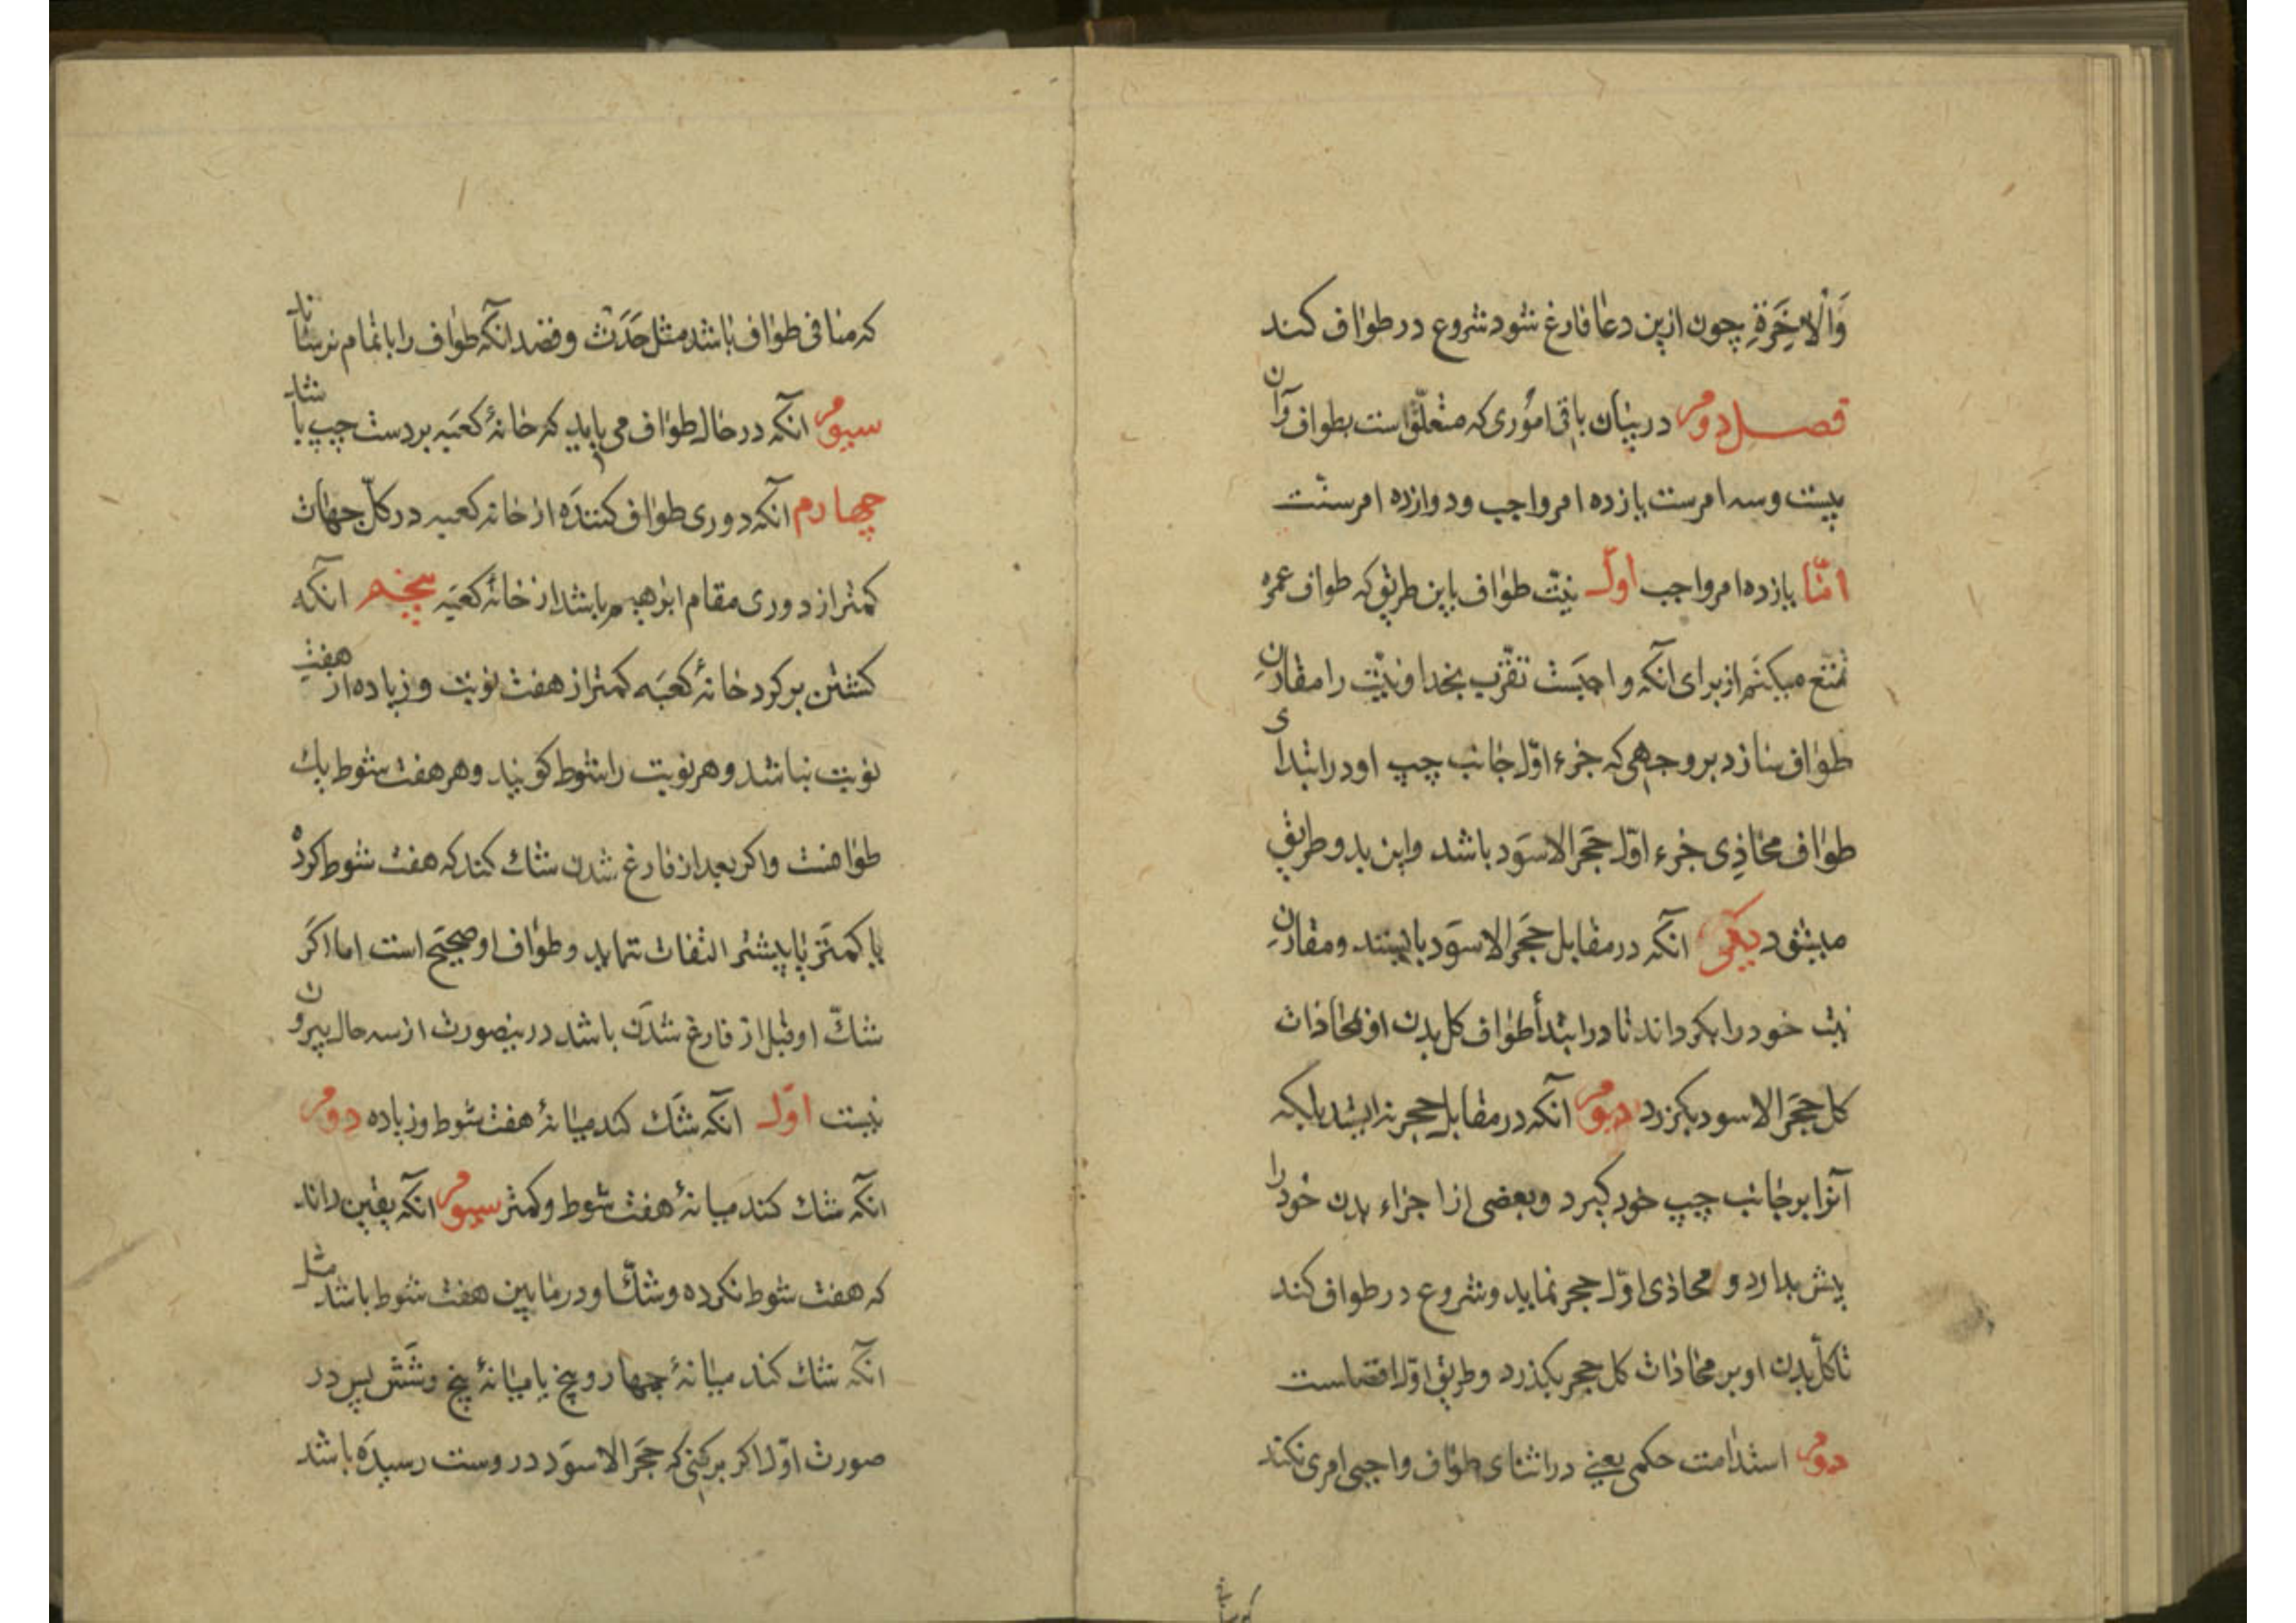 وَالْاٰخِرَةِ چون ازین دعا فارغ شود شروع در طواف کند
فصل دوم در بیان باقی اموری که متعلّق است بطواف و آن
بیست و سه امرست یازده امر واجب و دوازده امر سنّت
امّا یازده امر واجب اوّل نیّت طواف باین طریق که طواف عمره
تمتع میکنم از برای آنکه واجبست تقرّب بخدا و نیّت را مقارن
طواف سازد بر وجهی که جزء اوّل جانب چپ او در ابتدای
طواف محاذِی جزء اوّل حَجَر الاسوَد باشد و این بدو طریق
میشود یکی آنکه در مقابل حَجَر الاسوَد بایستد و مقارن
نیت خود را بگرداند تا در ابتدأ طواف کل بدن او بمحاذات
کل حَجَر الاسود بگزرد دیوم آنکه در مقابل حجر نه ایستد بلکه
آنرا بر جانب چپ خود گیرد و بعضی از اجزاء بدن خود را
پیش بدارد و محاذی اوّل حجر نماید و شروع در طواف کند
تا کلّ بدن او بر محاذات کل حجر بگذرد و طریق اوّل افضلست
دوم استدامت حکمی یعنی در اثنای طواف واجبی امری نکند
که منافی طواف باشد مثل حَدَث و قصد آنکه طواف را باتمام نرساند
سیوم آنکه در حال طواف می باید که خانهٔ کعبَه بر دست چپ باشد
چهارم آنکه دوری طواف کننده از خانه کعبه در کلّ جهات
کمتر از دوری مقام ابرهیم باشد از خانهٔ کعبَه پنجم آنکه
کشتن بر کرد خانهٔ کعبَه کمتر از هفت نوبت و زیاده از هفت
نوبت نباشد و هر نوبت را شوط کویند و هر هفت شوط یك
طوافست و اکر بعد از فارغ شدن شك کند که هفت شوط کرده
یا کمتر یا پیشتر التفات ننماید و طواف او صحیح است اما اکر
شكّ او قبل از فارغ شدَن باشد درینصورت از سه حال بیرون
نیست اوّل آنکه شك کند میانهٔ هفت شوط و زیاده دوم
آنکه شك کند میانهٔ هفت شوط و کمتر سیوم آنکه یقین داند
که هفت شوط نکرده و شكّ او در مابین هفت شوط باشد مثل
آنکه شك کند میانهٔ چهار و پنج یا میانهٔ پنج و شش پس در
صورت اوّل اکر برکنی که حَجَر الاسوَد دروست رسیده باشد